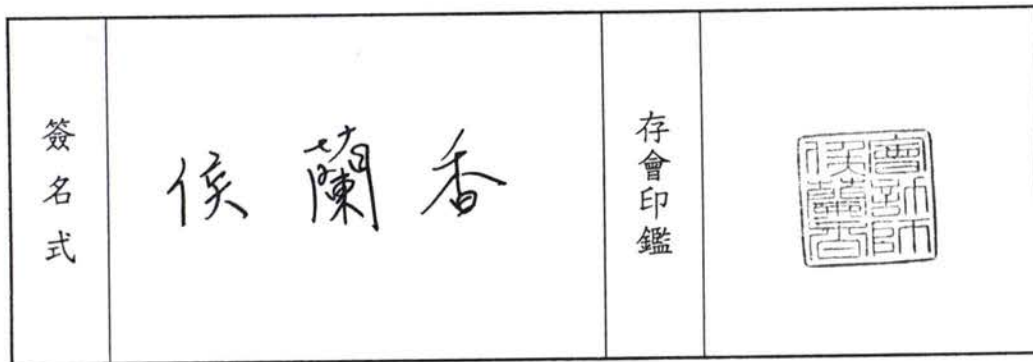 簽名式
侯蘭香
存會印鑑
會計師
侯蘭香